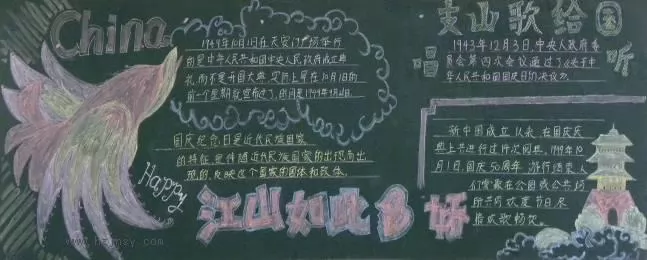 China
1949年10月1日在天安门广场举行
的是中华人民共和国中央人民政府成立典
礼,而不是开国大典.实际上早在10月1日的
前一个星期就宣布过了,时间是1949年9月
国庆纪念日是近代民族国家
的特征,是伴随近代民族国家的出现而出
现的,反映这个国家的国体和政体.
Happy
江山如此多娇
支山歌给国
唱 听
1943年12月3日,中央人政府委
员会第四次会议通过了《关于中
华人民共和国国庆日的决议》.
新中国成立以来,在国庆庆
典上共进行过 次阅兵.1949年10
月1日,国庆50周年 游行结束,人
们 载在公园或公共场
所共同欢度节日尽
情放歌畅饮.
www.hzmsy.com